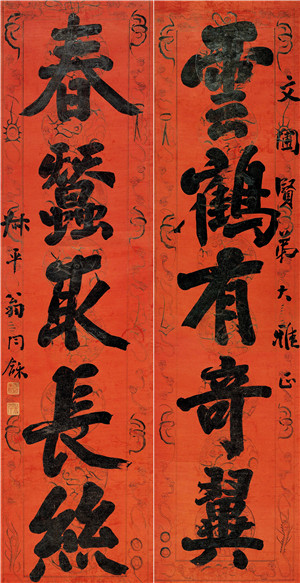 文圃賢弟大雅正
雲鶴有奇翼
春蠶收長絲
叔平翁同龢